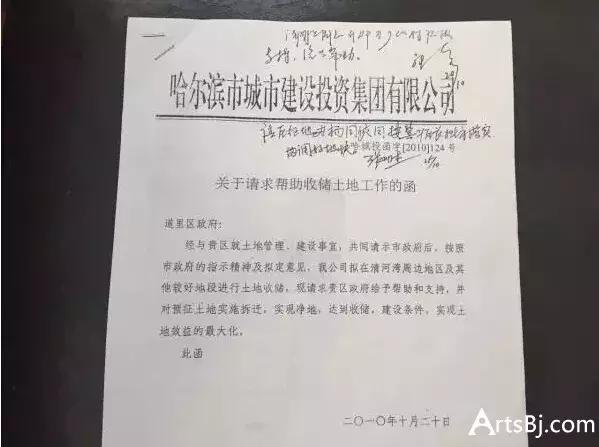 哈尔滨市城市建设投资集团有限公司
哈城投函字[2010]124号
关于请求帮助收储土地工作的函
道里区政府：
经与贵区就土地管理、建设事宜，共同请示市政府后，按照
市政府的指示精神及拟定意见，我公司拟在清河湾周边地区及其
他较好地段进行土地收储，现请求贵区政府给予帮助和支持，并
对摧征土地实施拆迁，实现净地，达到收储，建设条件，实现土
地效益的最大化。
此函
二〇一〇年十月二十日
ArtsBj.com